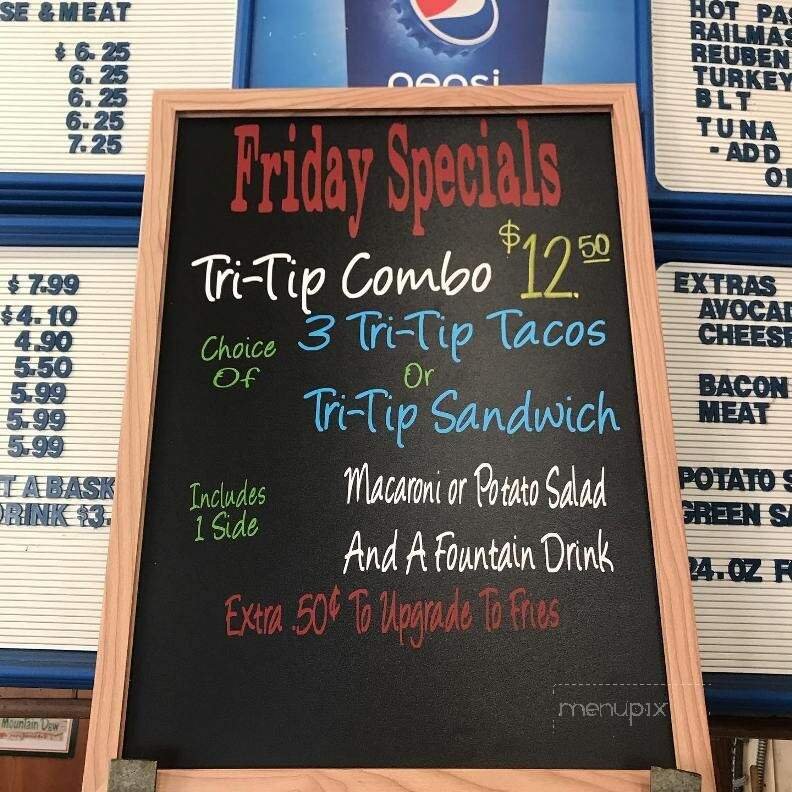 SE & MEAT
$ 6.25
6.25
6.25
6.25
7.25
$ 7.99
$4.10
4.90
5.50
5.99
5.99
5.99
T A BASK
RINK $3.
Mountain Dew
pepsi
Friday Specials
Tri-Tip Combo $12.50
Choice Of
3 Tri-Tip Tacos
Or
Tri-Tip Sandwich
Includes
1 Side
Macaroni or Potato Salad
And A Fountain Drink
Extra .50¢ To Upgrade To Fries
menupix
HOT PAS
RAILMAS
REUBEN
TURKEY
BLT
TUNA
- ADD
O
EXTRAS
AVOCAD
CHEESE
BACON
MEAT
POTATO S
GREEN SA
24.OZ FO